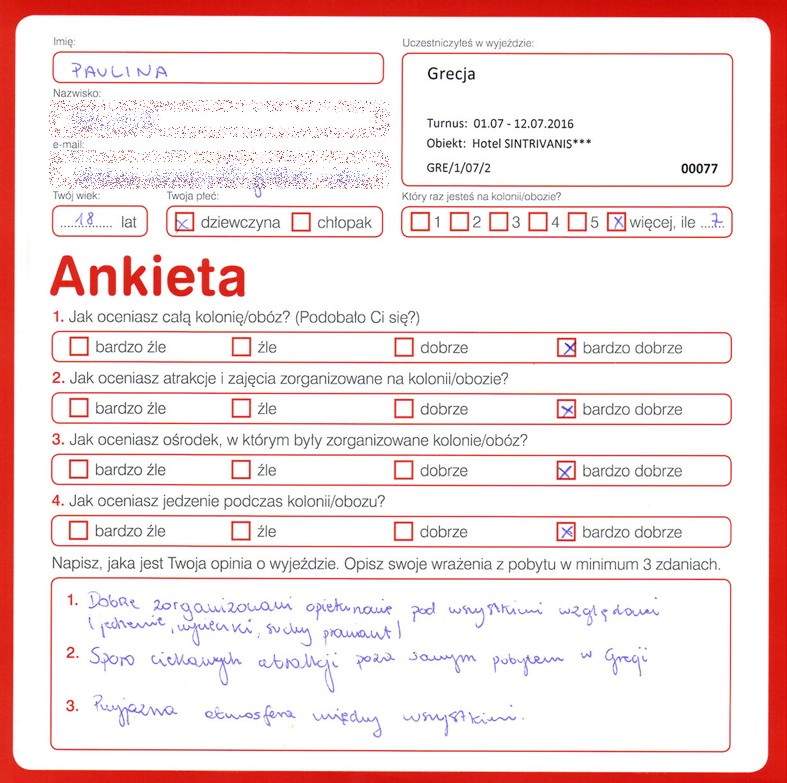 Imię:
PAULINA
Uczestniczyłeś w wyjeździe:
Grecja
Turnus: 01.07 - 12.07.2016
Obiekt: Hotel SINTRIVANIS***
GRE/1/07/2 00077
Nazwisko:
e-mail:
Twój wiek:
18 lat
Twoja płeć:
x dziewczyna chłopak
Który raz jesteś na kolonii/obozie?
1 2 3 4 5 x więcej, ile 7
Ankieta
1. Jak oceniasz całą kolonię/obóz? (Podobało Ci się?)
bardzo źle źle dobrze x bardzo dobrze
2. Jak oceniasz atrakcje i zajęcia zorganizowane na kolonii/obozie?
bardzo źle źle dobrze x bardzo dobrze
3. Jak oceniasz ośrodek, w którym były zorganizowane kolonie/obóz?
bardzo źle źle dobrze x bardzo dobrze
4. Jak oceniasz jedzenie podczas kolonii/obozu?
bardzo źle źle dobrze x bardzo dobrze
Napisz, jaka jest Twoja opinia o wyjeździe. Opisz swoje wrażenia z pobytu w minimum 3 zdaniach.
1. Dobrze zorganizowani opiekunowie pod wszystkimi względami
(jedzenie, wycieczki, suchy prowiant)
2. Sporo ciekawych atrakcji poza samym pobytem w Grecji
3. Przyjazna atmosfera między wszystkimi.